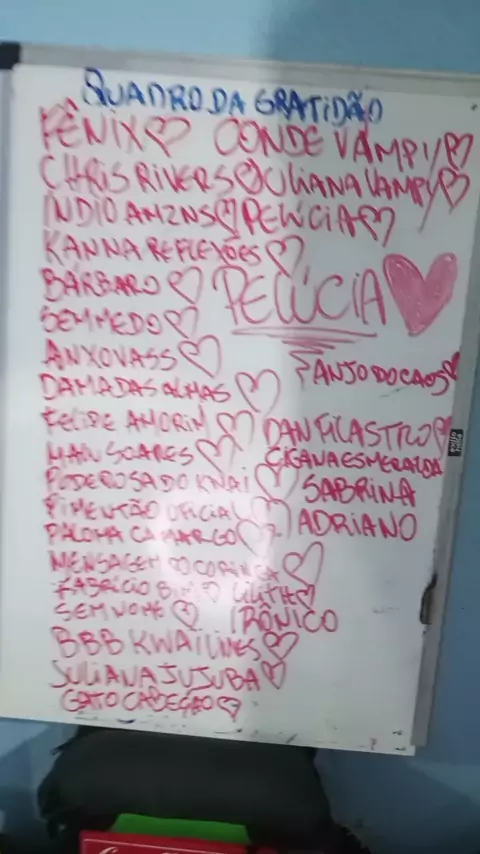 QUADRO DA GRATIDÃO
FÊNIX♡ CONDE VAMPY♡
CHRIS RIVERS♡JULIANA VAMPY♡
INDIO AMZNS♡PELÚCIA♡
KANNA REFLEXÕES♡
BÁRBARO♡ PELÚCIA♥
SEM MEDO♡
ANXOVASS♡ ANJO DO CAOS♡
DAMA DAS ALMAS♡
FELIPE AMORIM♡ DAN FILASTRO♡
MAIU SOARES♡ CIGANA ESMERALDA
PODEROSA DO KWAI♡ SABRINA
PIMENTÃO OFICIAL♡ ADRIANO
PALOMA CAMARGO♡
MENSAGEM DO CORINGA♡
FABRÍCIO ♡ LILITH♡
SEM NOME♡ IRÔNICO
BBB KWAI LINES♡
JULIANA JUJUBA♡
GATO CABEÇÃO♡